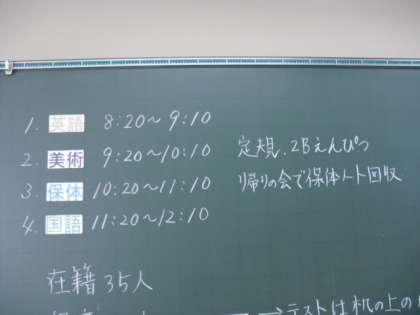 1. 英語 8:20～9:10
2. 美術 9:20～10:10 定規、2Bえんぴつ
3. 保体 10:20～11:10 帰りの会で保体ノート回収
4. 国語 11:20～12:10
在籍 35人
→テストは机の上の